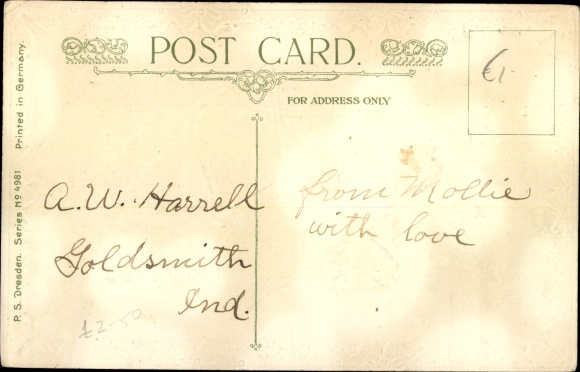 POST CARD.
FOR ADDRESS ONLY
€1-
P. S. Dresden. Series No 4981 Printed in Germany.
A. W. Harrell
Goldsmith
Ind.
£2-50
from Mollie
with love